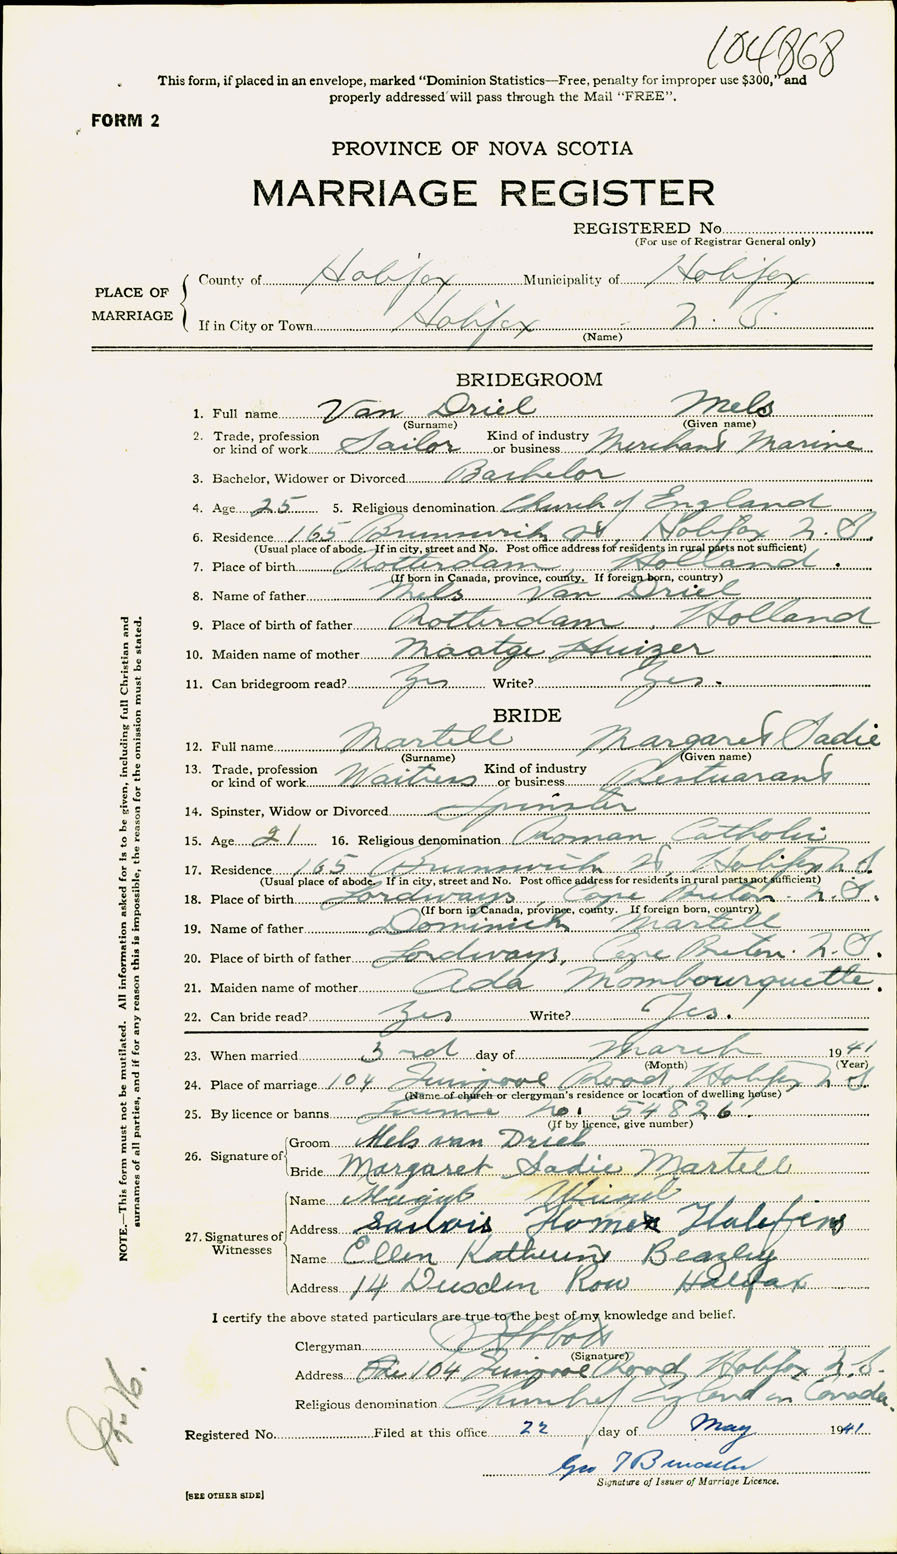 104868
This form, if placed in an envelope, marked "Dominion Statistics—Free, penalty for improper use $300," and
properly addressed will pass through the Mail "FREE".
FORM 2
PROVINCE OF NOVA SCOTIA
MARRIAGE REGISTER
REGISTERED No.
(For use of Registrar General only)
PLACE OF MARRIAGE
County of Halifax Municipality of Halifax
If in City or Town Halifax N. S.
(Name)
BRIDEGROOM
1. Full name Van Driel Mels
(Surname) (Given name)
2. Trade, profession or kind of work Sailor Kind of industry or business Merchant Marine
3. Bachelor, Widower or Divorced Bachelor
4. Age 25 5. Religious denomination Church of England
6. Residence 165 Brunswick St, Halifax N. S.
(Usual place of abode. If in city, street and No. Post office address for residents in rural parts not sufficient)
7. Place of birth Rotterdam, Holland.
(If born in Canada, province, county. If foreign born, country)
8. Name of father Mels Van Driel
9. Place of birth of father Rotterdam, Holland
10. Maiden name of mother Maatge Huizer
11. Can bridegroom read? Yes Write? Yes.
BRIDE
12. Full name Martell Margaret Sadie
(Surname) (Given name)
13. Trade, profession or kind of work Waitress Kind of industry or business Restuarant
14. Spinster, Widow or Divorced Spinster
15. Age 21 16. Religious denomination Roman Catholic
17. Residence 165 Brunswick St, Halifax N. S.
(Usual place of abode. If in city, street and No. Post office address for residents in rural parts not sufficient)
18. Place of birth Lordways, Cape Breton. N. S.
(If born in Canada, province, county. If foreign born, country)
19. Name of father Dominick Martell
20. Place of birth of father Lordways, Cape Breton. N. S.
21. Maiden name of mother Ada Mombourquette.
22. Can bride read? Yes Write? Yes.
23. When married 3rd day of March 1941
(Month) (Year)
24. Place of marriage 104 Road, Halifax N S
(Name of church or clergyman's residence or location of dwelling house)
25. By licence or banns No. 54826.
(If by licence, give number)
26. Signature of
Groom Mels van Driel
Bride Margaret Sadie Martell
27. Signatures of Witnesses
Name
Address Sailors Home Halifax
Name Ellen Katherine Beazley
Address 14 Dresden Row Halifax
I certify the above stated particulars are true to the best of my knowledge and belief.
Clergyman
(Signature)
Address 104 Road Halifax N. S.
Religious denomination Church of England in Canada.
Registered No. Filed at this office 22 day of May 1941
Geo
Signature of Issuer of Marriage Licence.
[SEE OTHER SIDE]
NOTE.—This form must not be mutilated. All information asked for is to be given, including full Christian and
surnames of all parties, and if for any reason this is impossible, the reason for the omission must be stated.